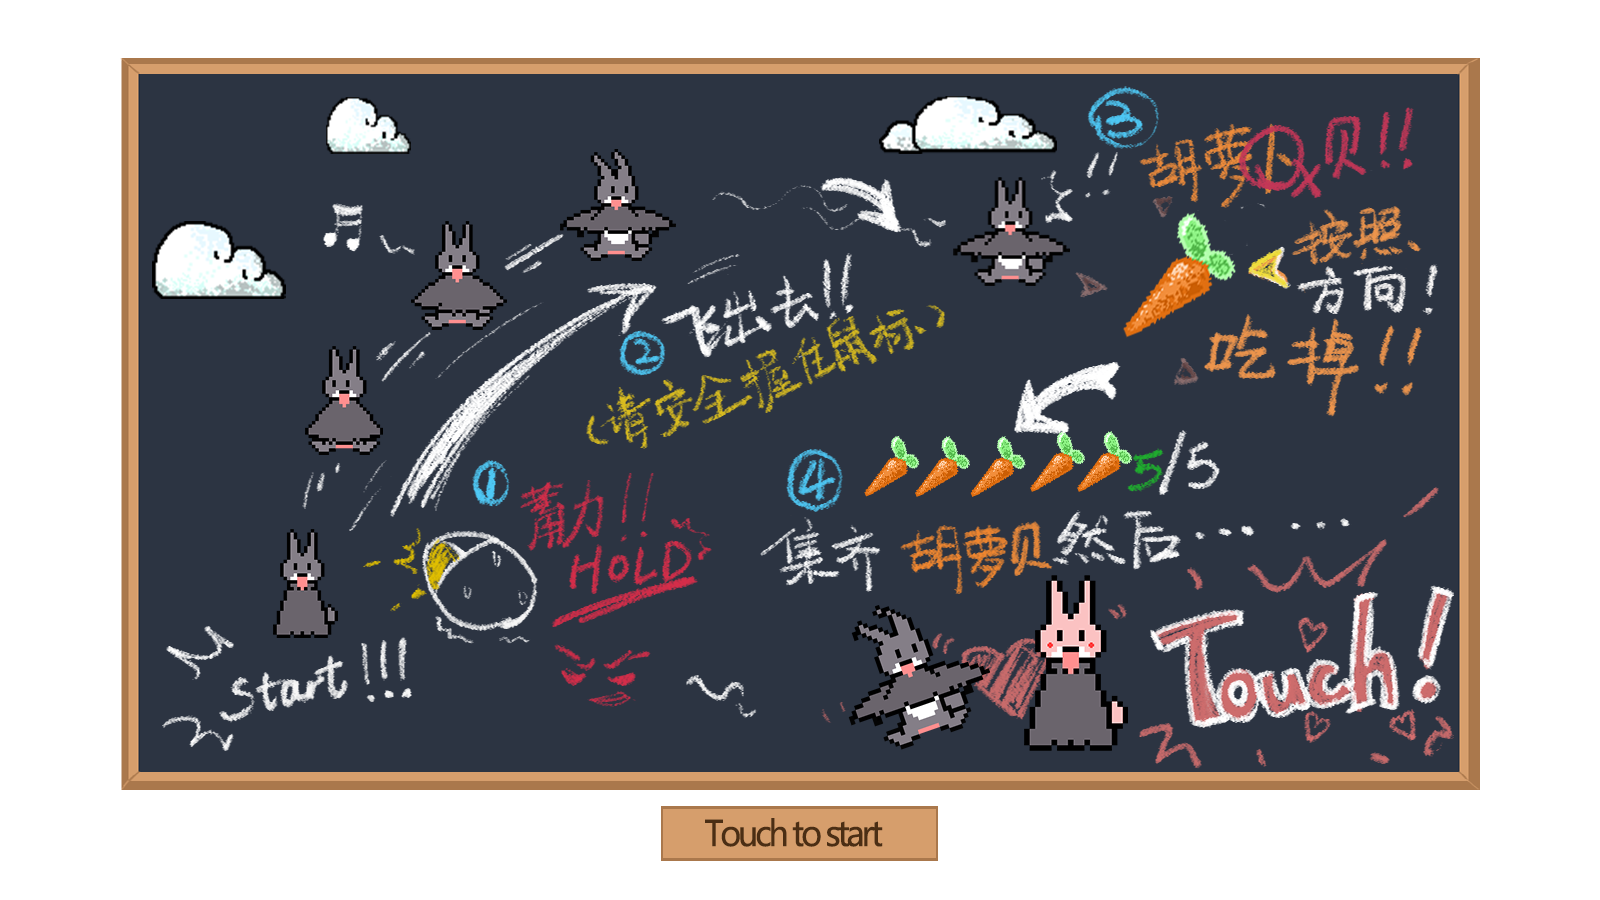 Start!!!
①
蓄力!!
HOLD
②
飞出去!!
(请安全握住鼠标.)
③
胡萝卜x贝!!
按照
方向!
吃掉!!
④
5/5
集齐胡萝贝然后······
Touch!
Touch to start